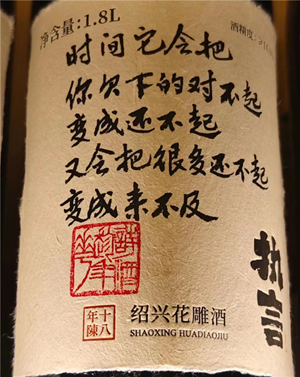 净含量:1.8L
酒精度:
时间它会把
你欠下的对不起
变成还不起
又会把很多还不起
变成来不及
诗酒趁年华
执言
十八年陳
绍兴花雕酒
SHAOXING HUADIAOJIU